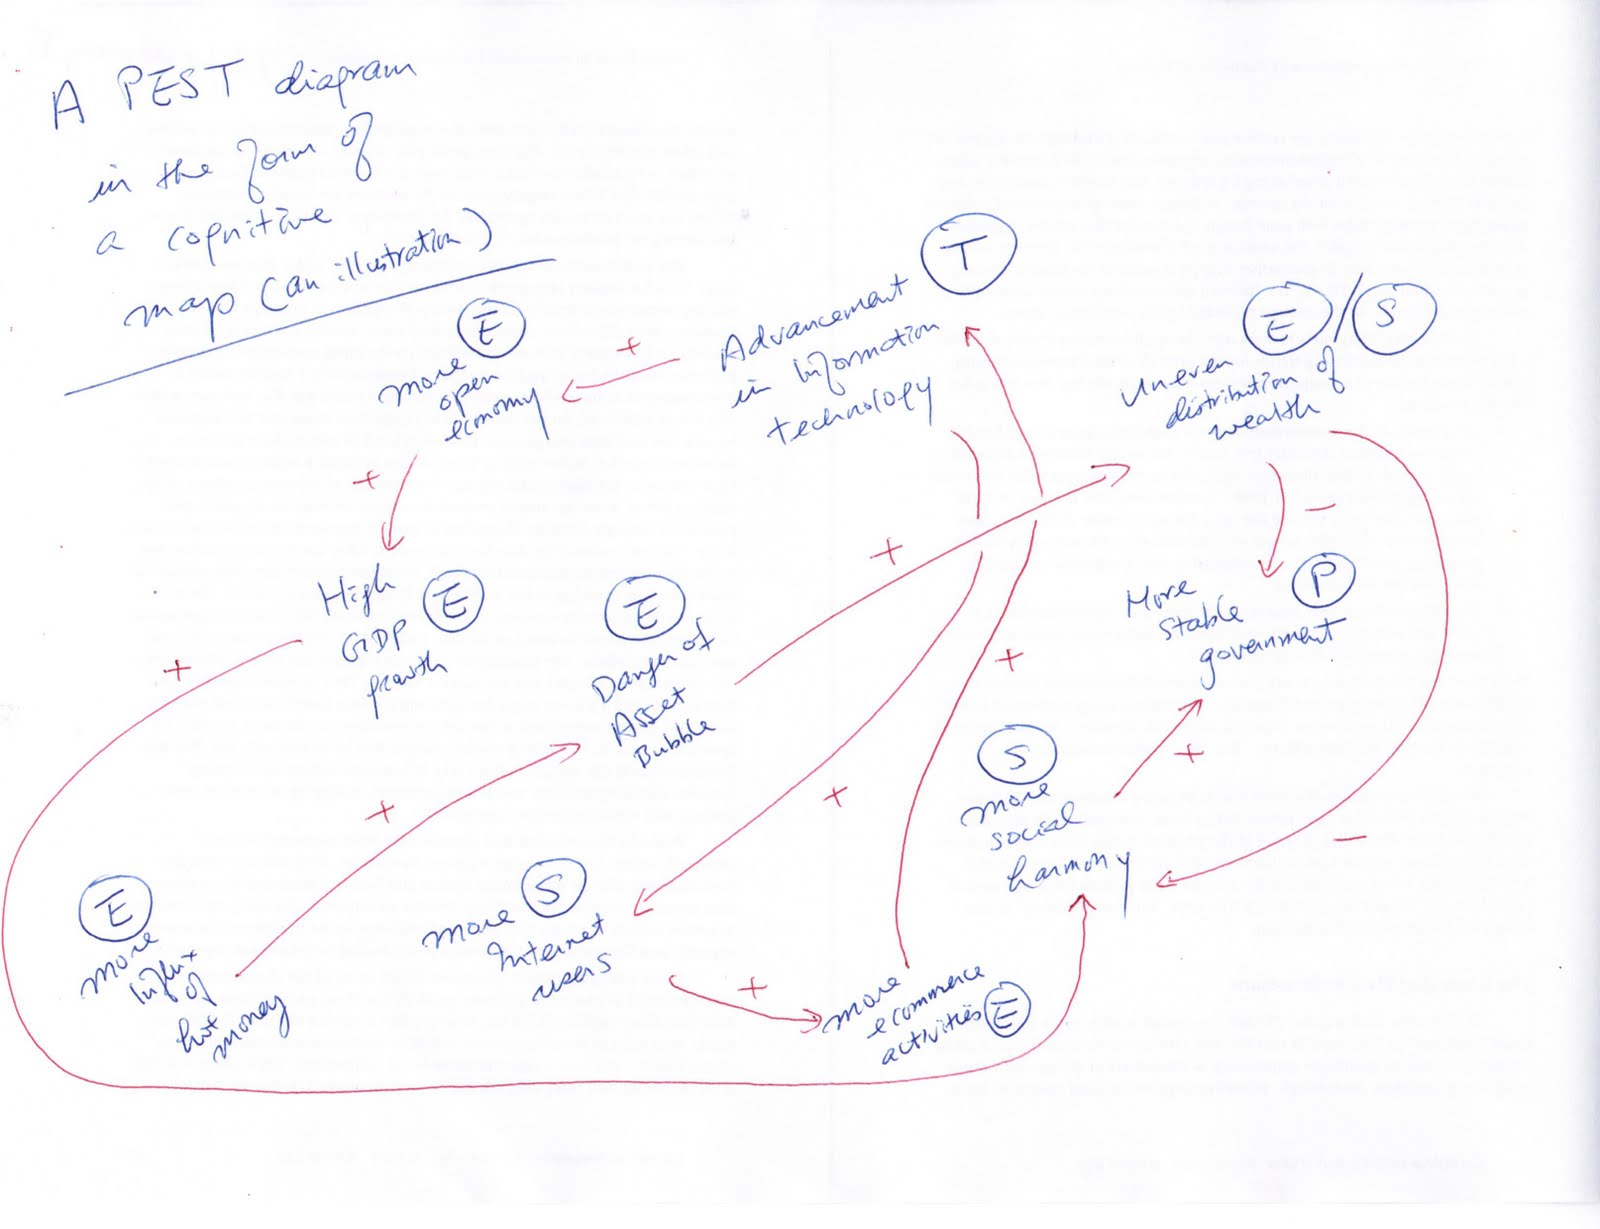 A PEST diagram
in the form of
a cognitive
map (an illustration)
E
more
open
economy
+
T
Advancement
in Information
technology
E/S
Uneven
distribution of
wealth
+
High
GDP E
growth
+
E
Danger of
Asset
Bubble
+
-
P
More
stable
government
+
+
S
more
social
harmony
+
-
+
E
more
Influx
of
hot
money
more S
Internet
users
+
more
ecommerce
activities E